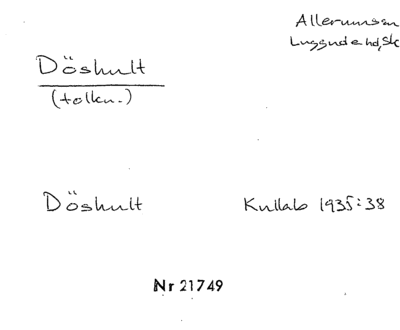 Allerumssn
Luggude hd, Sk
Döshult
(tolkn.)
Döshult Kullab 1935:38
Nr 21749